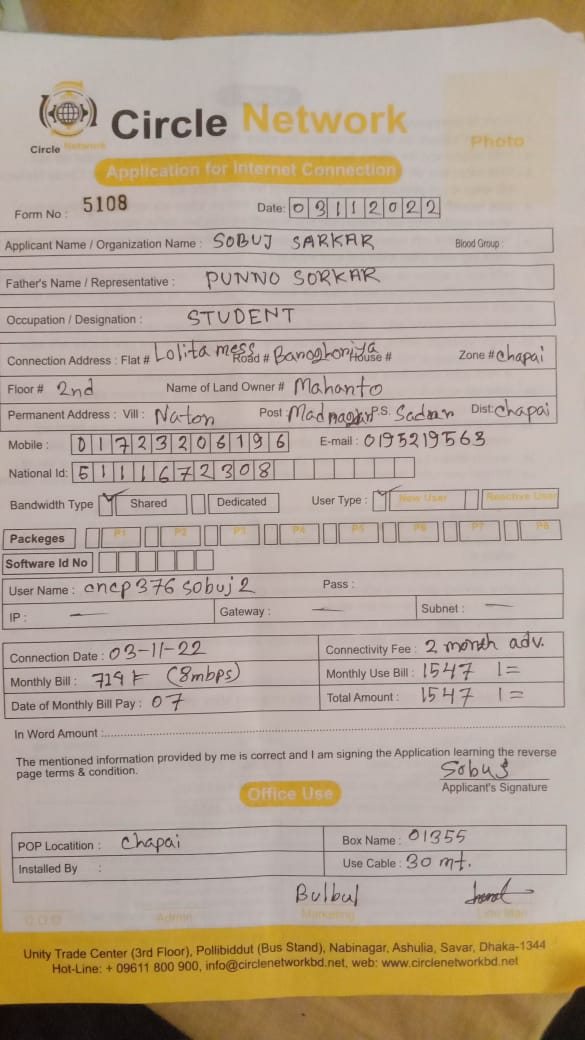 Circle Network
Circle Network
Photo
Application for Internet Connection
Form No : 5108 Date: 03112022
Applicant Name / Organization Name : SOBUJ SARKAR Blood Group :
Father's Name / Representative : PUNNO SORKAR
Occupation / Designation : STUDENT
Connection Address : Flat # Lolita mess Road # House # Zone # Chapai
Floor # 2nd Name of Land Owner # Mahanto
Permanent Address : Vill : Naton Post : P.S. Dist: Chapai
Mobile : 01723206196 E-mail : 0195219563
National Id: 5111672308
Bandwidth Type Shared Dedicated User Type : New User Reactive User
Packeges P1 P2 P3 P4 P5 P6 P7 P8
Software Id No
User Name : cncp376sobuj2 Pass :
IP : — Gateway : — Subnet : —
Connection Date : 03-11-22 Connectivity Fee : 2 month adv.
Monthly Bill : (8mbps) Monthly Use Bill : 1547 1=
Date of Monthly Bill Pay : 07 Total Amount : 1547 1=
In Word Amount :
The mentioned information provided by me is correct and I am signing the Application learning the reverse
page terms & condition.
Sobuj
Applicant's Signature
Office Use
POP Locatition : Chapai Box Name : 01355
Installed By : Use Cable : 30 mt.
Bulbul
C.O.O Admin Marketing Line Man
Unity Trade Center (3rd Floor), Pollibiddut (Bus Stand), Nabinagar, Ashulia, Savar, Dhaka-1344
Hot-Line: + 09611 800 900, info@circlenetworkbd.net, web: www.circlenetworkbd.net